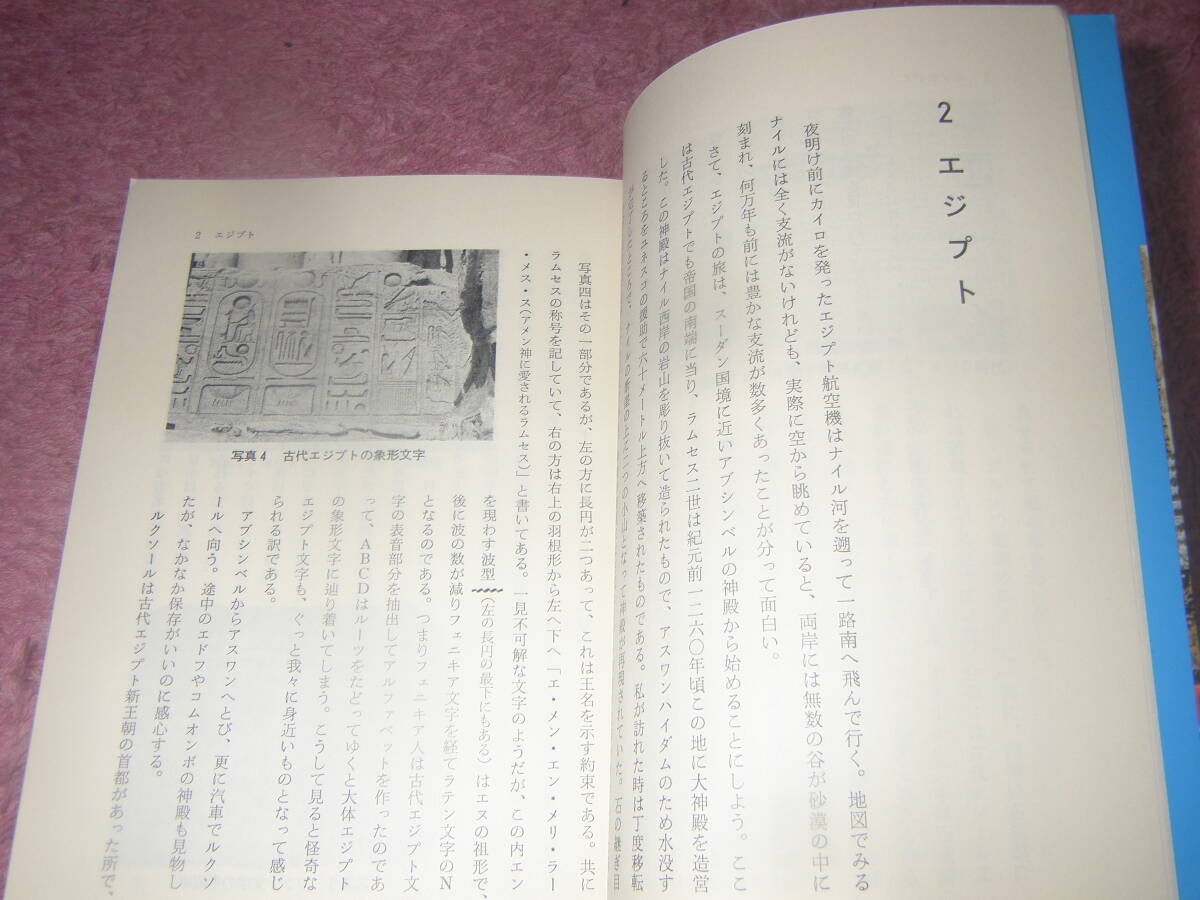 2 エジプト
夜明け前にカイロを発ったエジプト航空機はナイル河を遡って一路南へ飛んで行く。地図でみる
ナイルには全く支流がないけれども、実際に空から眺めていると、両岸には無数の谷が砂漠の中に
刻まれ、何万年も前には豊かな支流が数多くあったことが分って面白い。
さて、エジプトの旅は、スーダン国境に近いアブシンベルの神殿から始めることにしよう。ここ
は古代エジプトでも帝国の南端に当り、ラムセス二世は紀元前一二六〇年頃この地に大神殿を造営
した。この神殿はナイル西岸の岩山を彫り抜いて造られたもので、アスワンハイダムのため水没す
るところをユネスコの援助で六十メートル上方へ移築されたものである。私が訪れた時は丁度移転
が完了したところで、ナイルの断崖の上に二つの小山となって神殿が再現されていた。石の継ぎ目
2 エジプト
写真4 古代エジプトの象形文字
写真四はその一部分であるが、左の方に長円が二つあって、これは王名を示す約束である。共に
ラムセスの称号を記していて、右の方は右上の羽根形から左へ下へ「エ・メン・エン・メリ・ラー
・メス・ス(アメン神に愛されるラムセス)」と書いてある。一見不可解な文字のようだが、この内エン
を現わす波型(左の長円の最下にもある)はエスの祖形で、
後に波の数が減りフェニキア文字を経てラテン文字のN
となるのである。つまりフェニキア人は古代エジプト文
字の表音部分を抽出してアルファベットを作ったのであ
って、ABCDはルーツをたどってゆくと大体エジプト
の象形文字に辿り着いてしまう。こうして見ると怪奇な
エジプト文字も、ぐっと我々に身近いものとなって感じ
られる訳である。
アブシンベルからアスワンへとび、更に汽車でルクソ
ールへ向う。途中のエドフやコムオンボの神殿も見物し
たが、なかなか保存がいいのに感心する。
ルクソールは古代エジプト新王朝の首都があった所で、